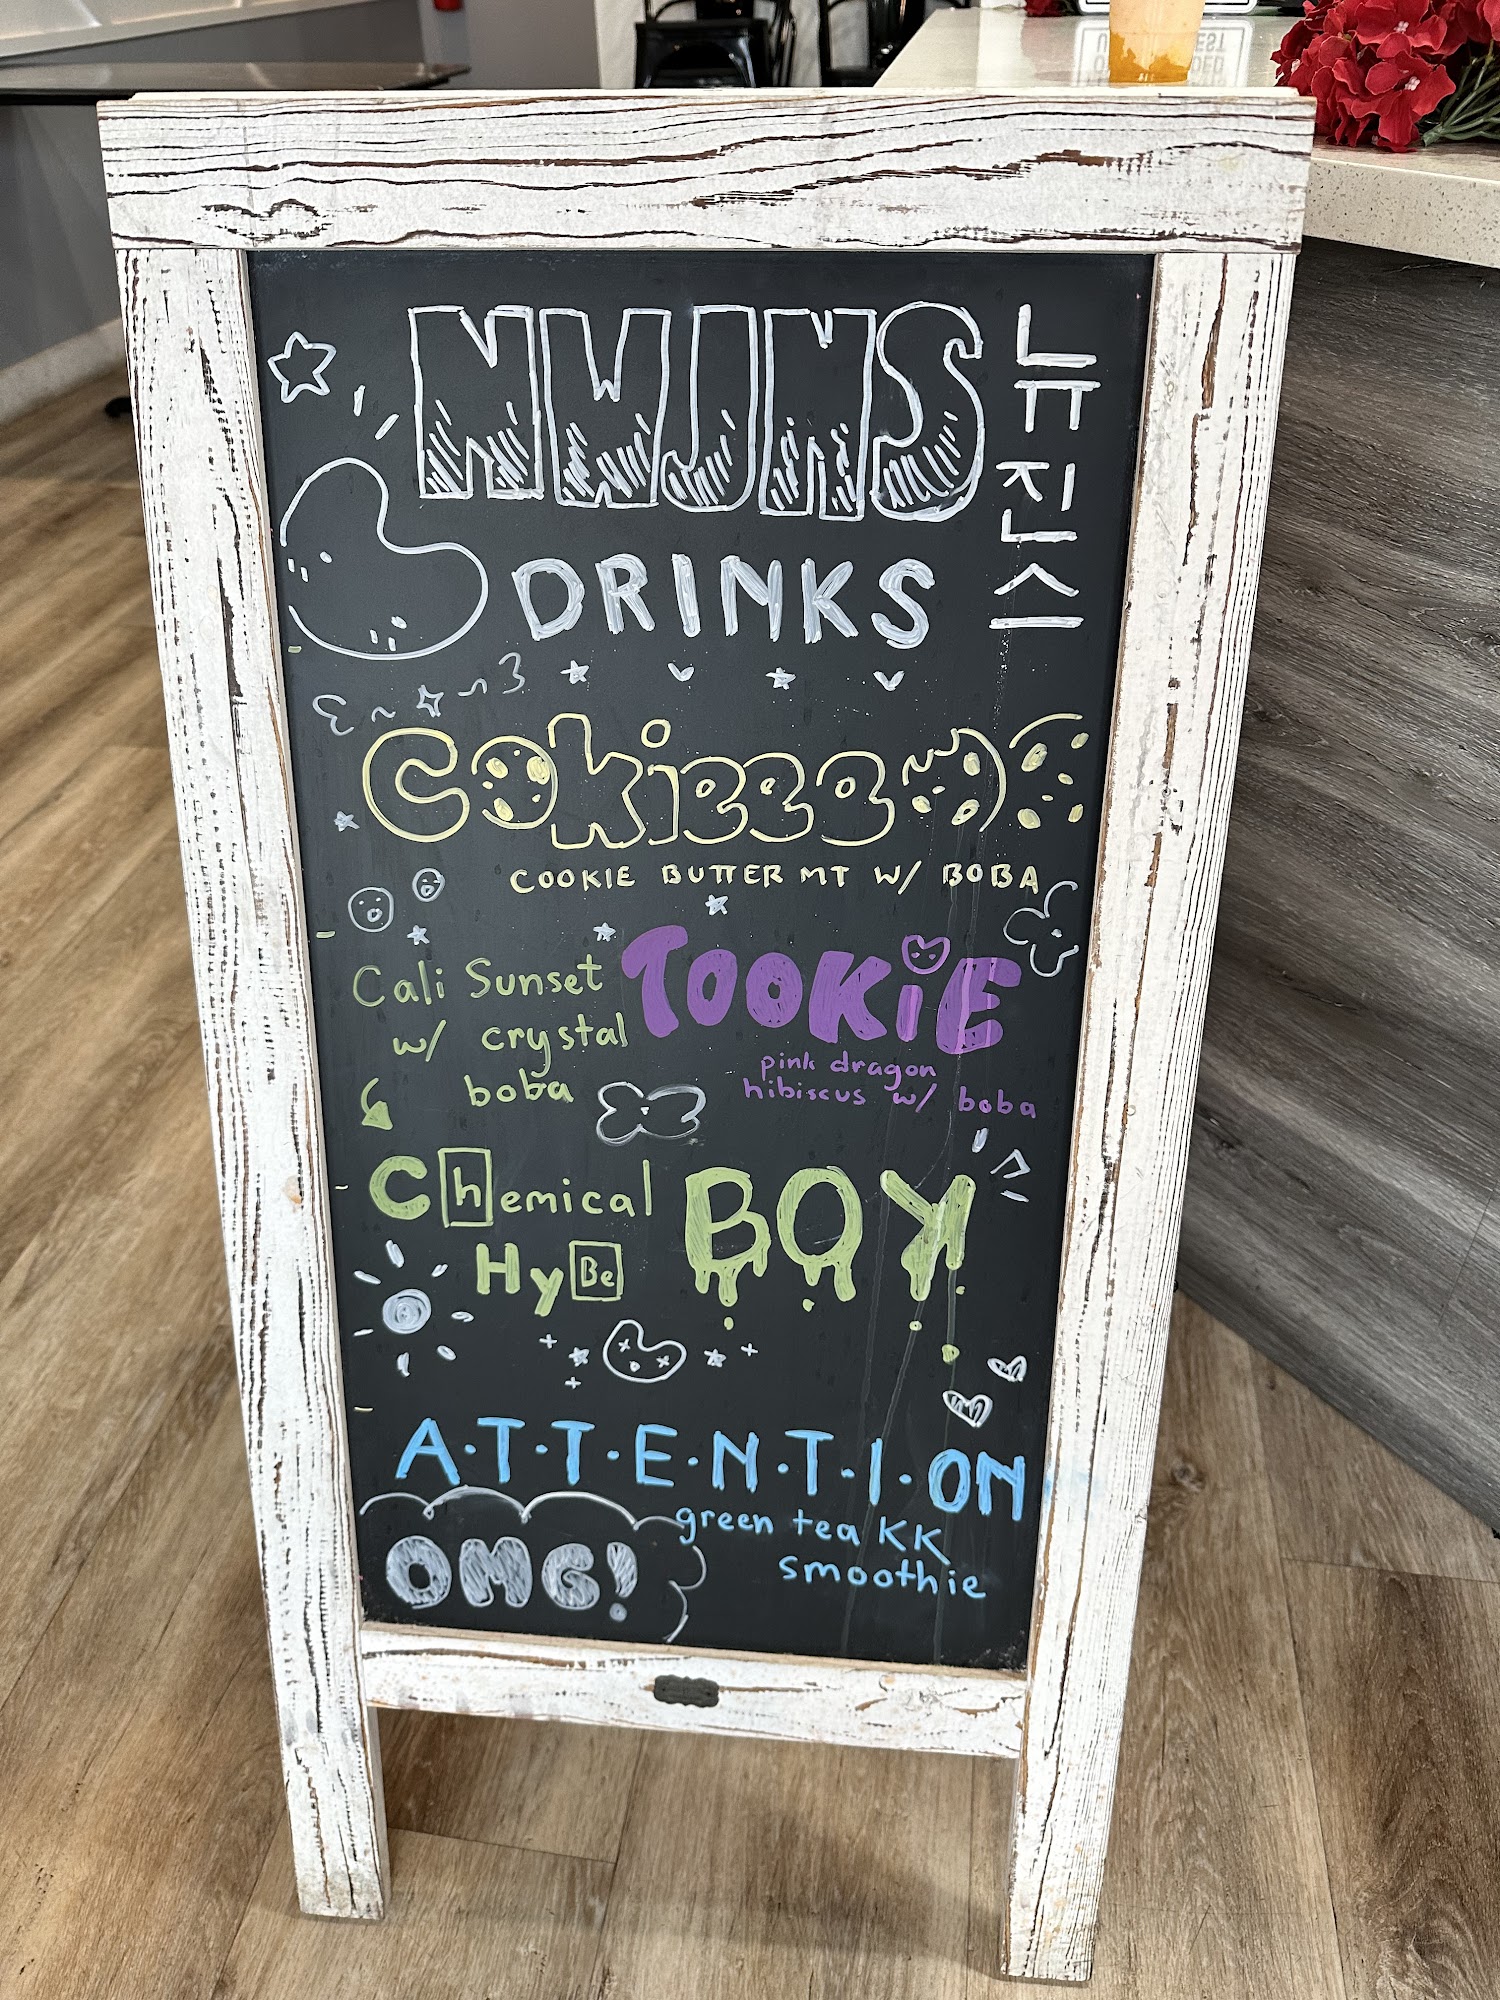 NWJNS
뉴진스
DRINKS
COOKieee
COOKIE BUTTER MT W/ BOBA
TOOKiE
pink dragon
hibiscus w/ boba
Cali Sunset
w/ crystal
boba
Chemical
HyBe
BOY
A·T·T·E·N·T·I·ON
green tea KK
smoothie
OMG!